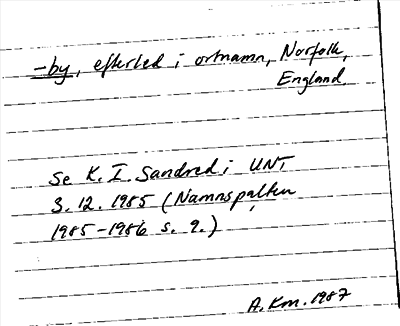 -by, efterled i ortnamn, Norfolk,
England.
Se K. I. Sandred i UNT
3.12.1985 (Namnspalten
1985-1986 s. 9.)
A. Km. 1987